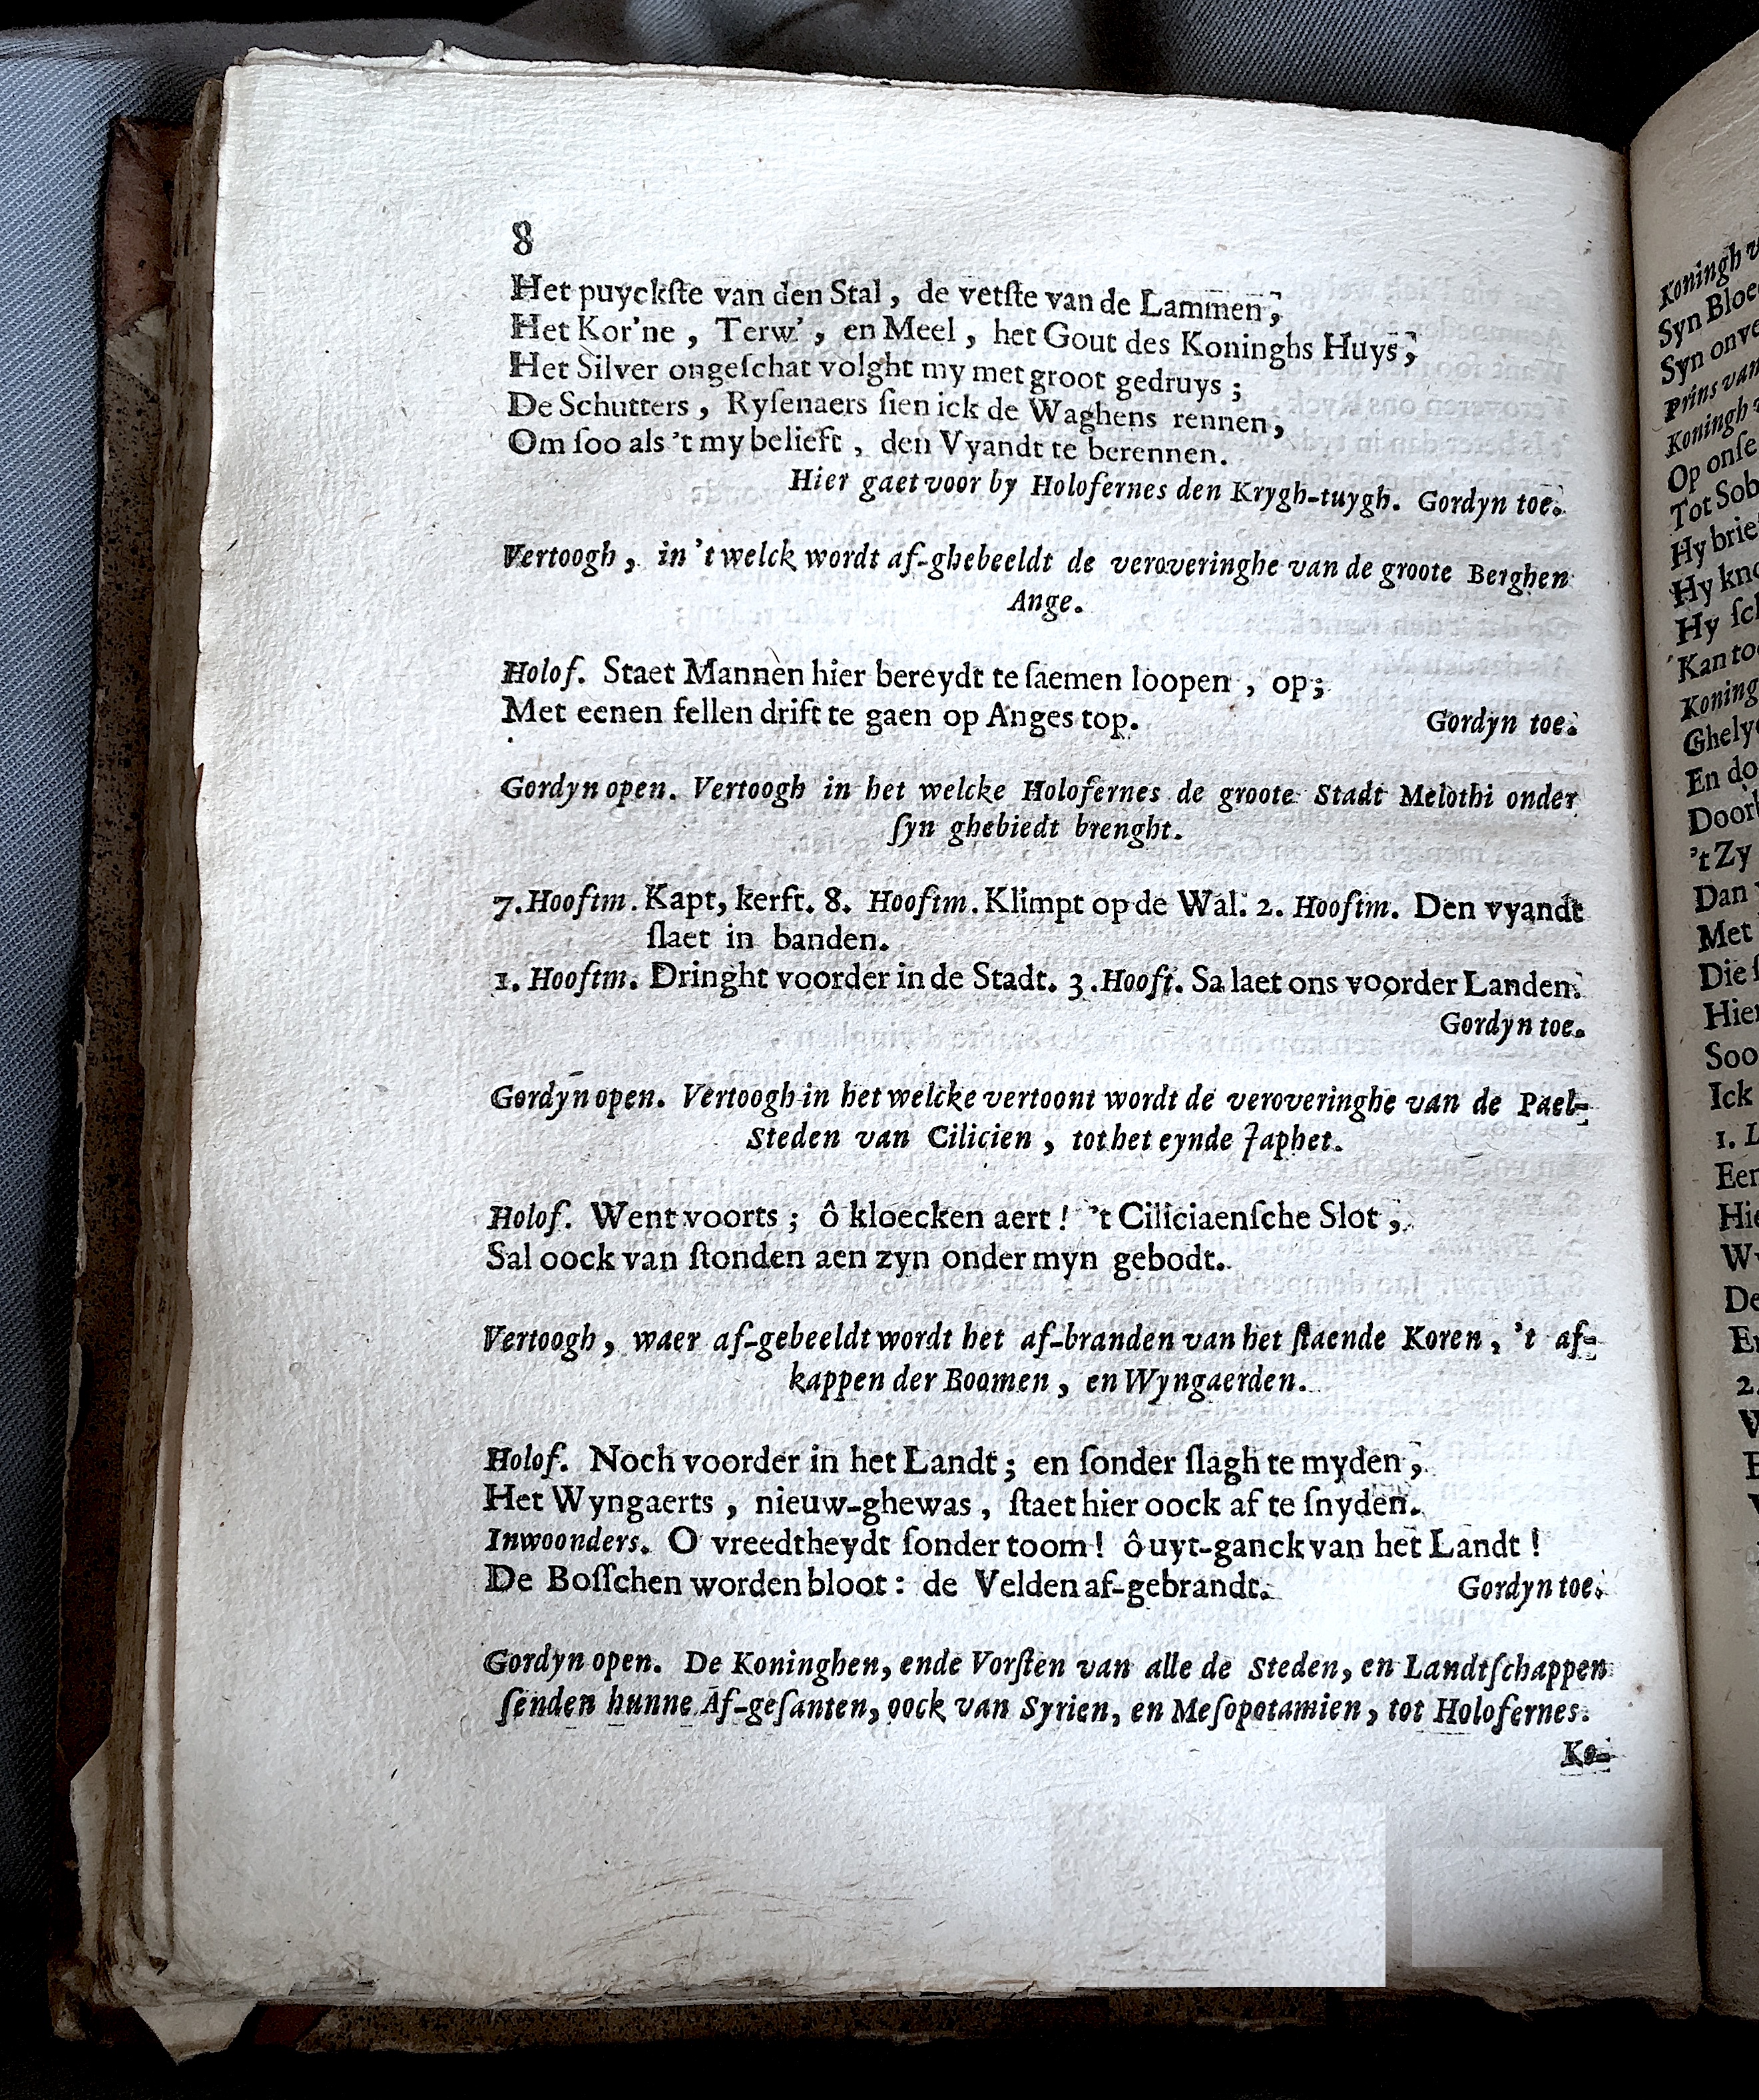 8
Het puyckſte van den Stal, de vetſte van de Lammen,
Het Kor'ne, Terw', en Meel, het Gout des Koninghs Huys,
Het Silver ongeſchat volght my met groot gedruys;
De Schutters, Ryſenaers ſien ick de Waghens rennen,
Om ſoo als 't my belieft, den Vyandt te berennen.
Hier gaet voor by Holofernes den Krygh-tuygh. Gordyn toe.
Vertoogh, in 't welck wordt af-ghebeeldt de veroveringhe van de groote Berghen
Ange.
Holof. Staet Mannen hier bereydt te ſaemen loopen, op;
Met eenen fellen drift te gaen op Anges top. Gordyn toe.
Gordyn open. Vertoogh in het welcke Holofernes de groote Stadt Melothi onder
ſyn ghebiedt brenght.
7. Hooftm. Kapt, kerft. 8. Hooftm. Klimpt op de Wal. 2. Hooftm. Den vyandt
ſlaet in banden.
1. Hooftm. Dringht voorder in de Stadt. 3. Hooft. Sa laet ons voorder Landen.
Gordyn toe.
Gordyn open. Vertoogh in het welcke vertoont wordt de veroveringhe van de Pael-
Steden van Cilicien, tot het eynde Japhet.
Holof. Went voorts; ô kloecken aert! 't Ciliciaenſche Slot,
Sal oock van ſtonden aen zyn onder myn gebodt.
Vertoogh, waer af-gebeeldt wordt het af-branden van het ſtaende Koren, 't af-
kappen der Boomen, en Wyngaerden.
Holof. Noch voorder in het Landt; en ſonder ſlagh te myden,
Het Wyngaerts, nieuw-ghewas, ſtaet hier oock af te ſnyden.
Inwoonders. O vreedtheydt ſonder toom! ô uyt-ganck van het Landt!
De Boſſchen worden bloot: de Velden af-gebrandt. Gordyn toe.
Gordyn open. De Koninghen, ende Vorſten van alle de Steden, en Landtſchappen
ſenden hunne Af-geſanten, oock van Syrien, en Meſopotamien, tot Holofernes.
Ko-
Koningh
Syn
Syn
Prins van
Koningh
Op onſe
Tot
Hy
Hy
Hy
Kan
En
Door
't Zy
Dan
Met
Die
Hier
Soo
Ick
1.
2.